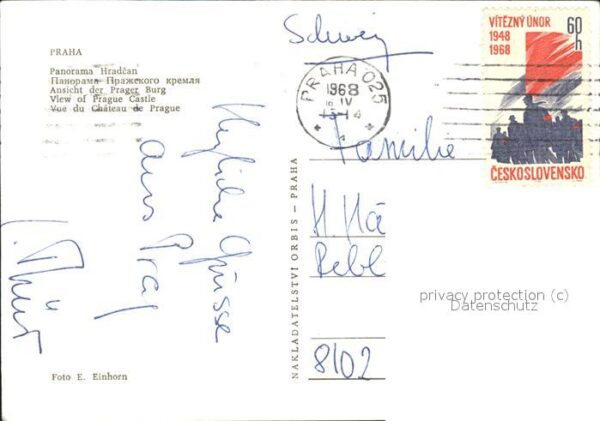 PRAHA
Panorama Hradčan
Панорама Пражского кремля
Ansicht der Prager Burg
View of Prague Castle
Vue du Château de Prague
Herzliche Grüsse
aus Prag
Foto E. Einhorn
NAKLADATELSTVÍ ORBIS – PRAHA
Schweiz
PRAHA 025
1968
IV
VÍTĚZNÝ ÚNOR
1948
1968
60
h
ČESKOSLOVENSKO
Familie
H. Hä
Rebl
8102
privacy protection (c)
Datenschutz